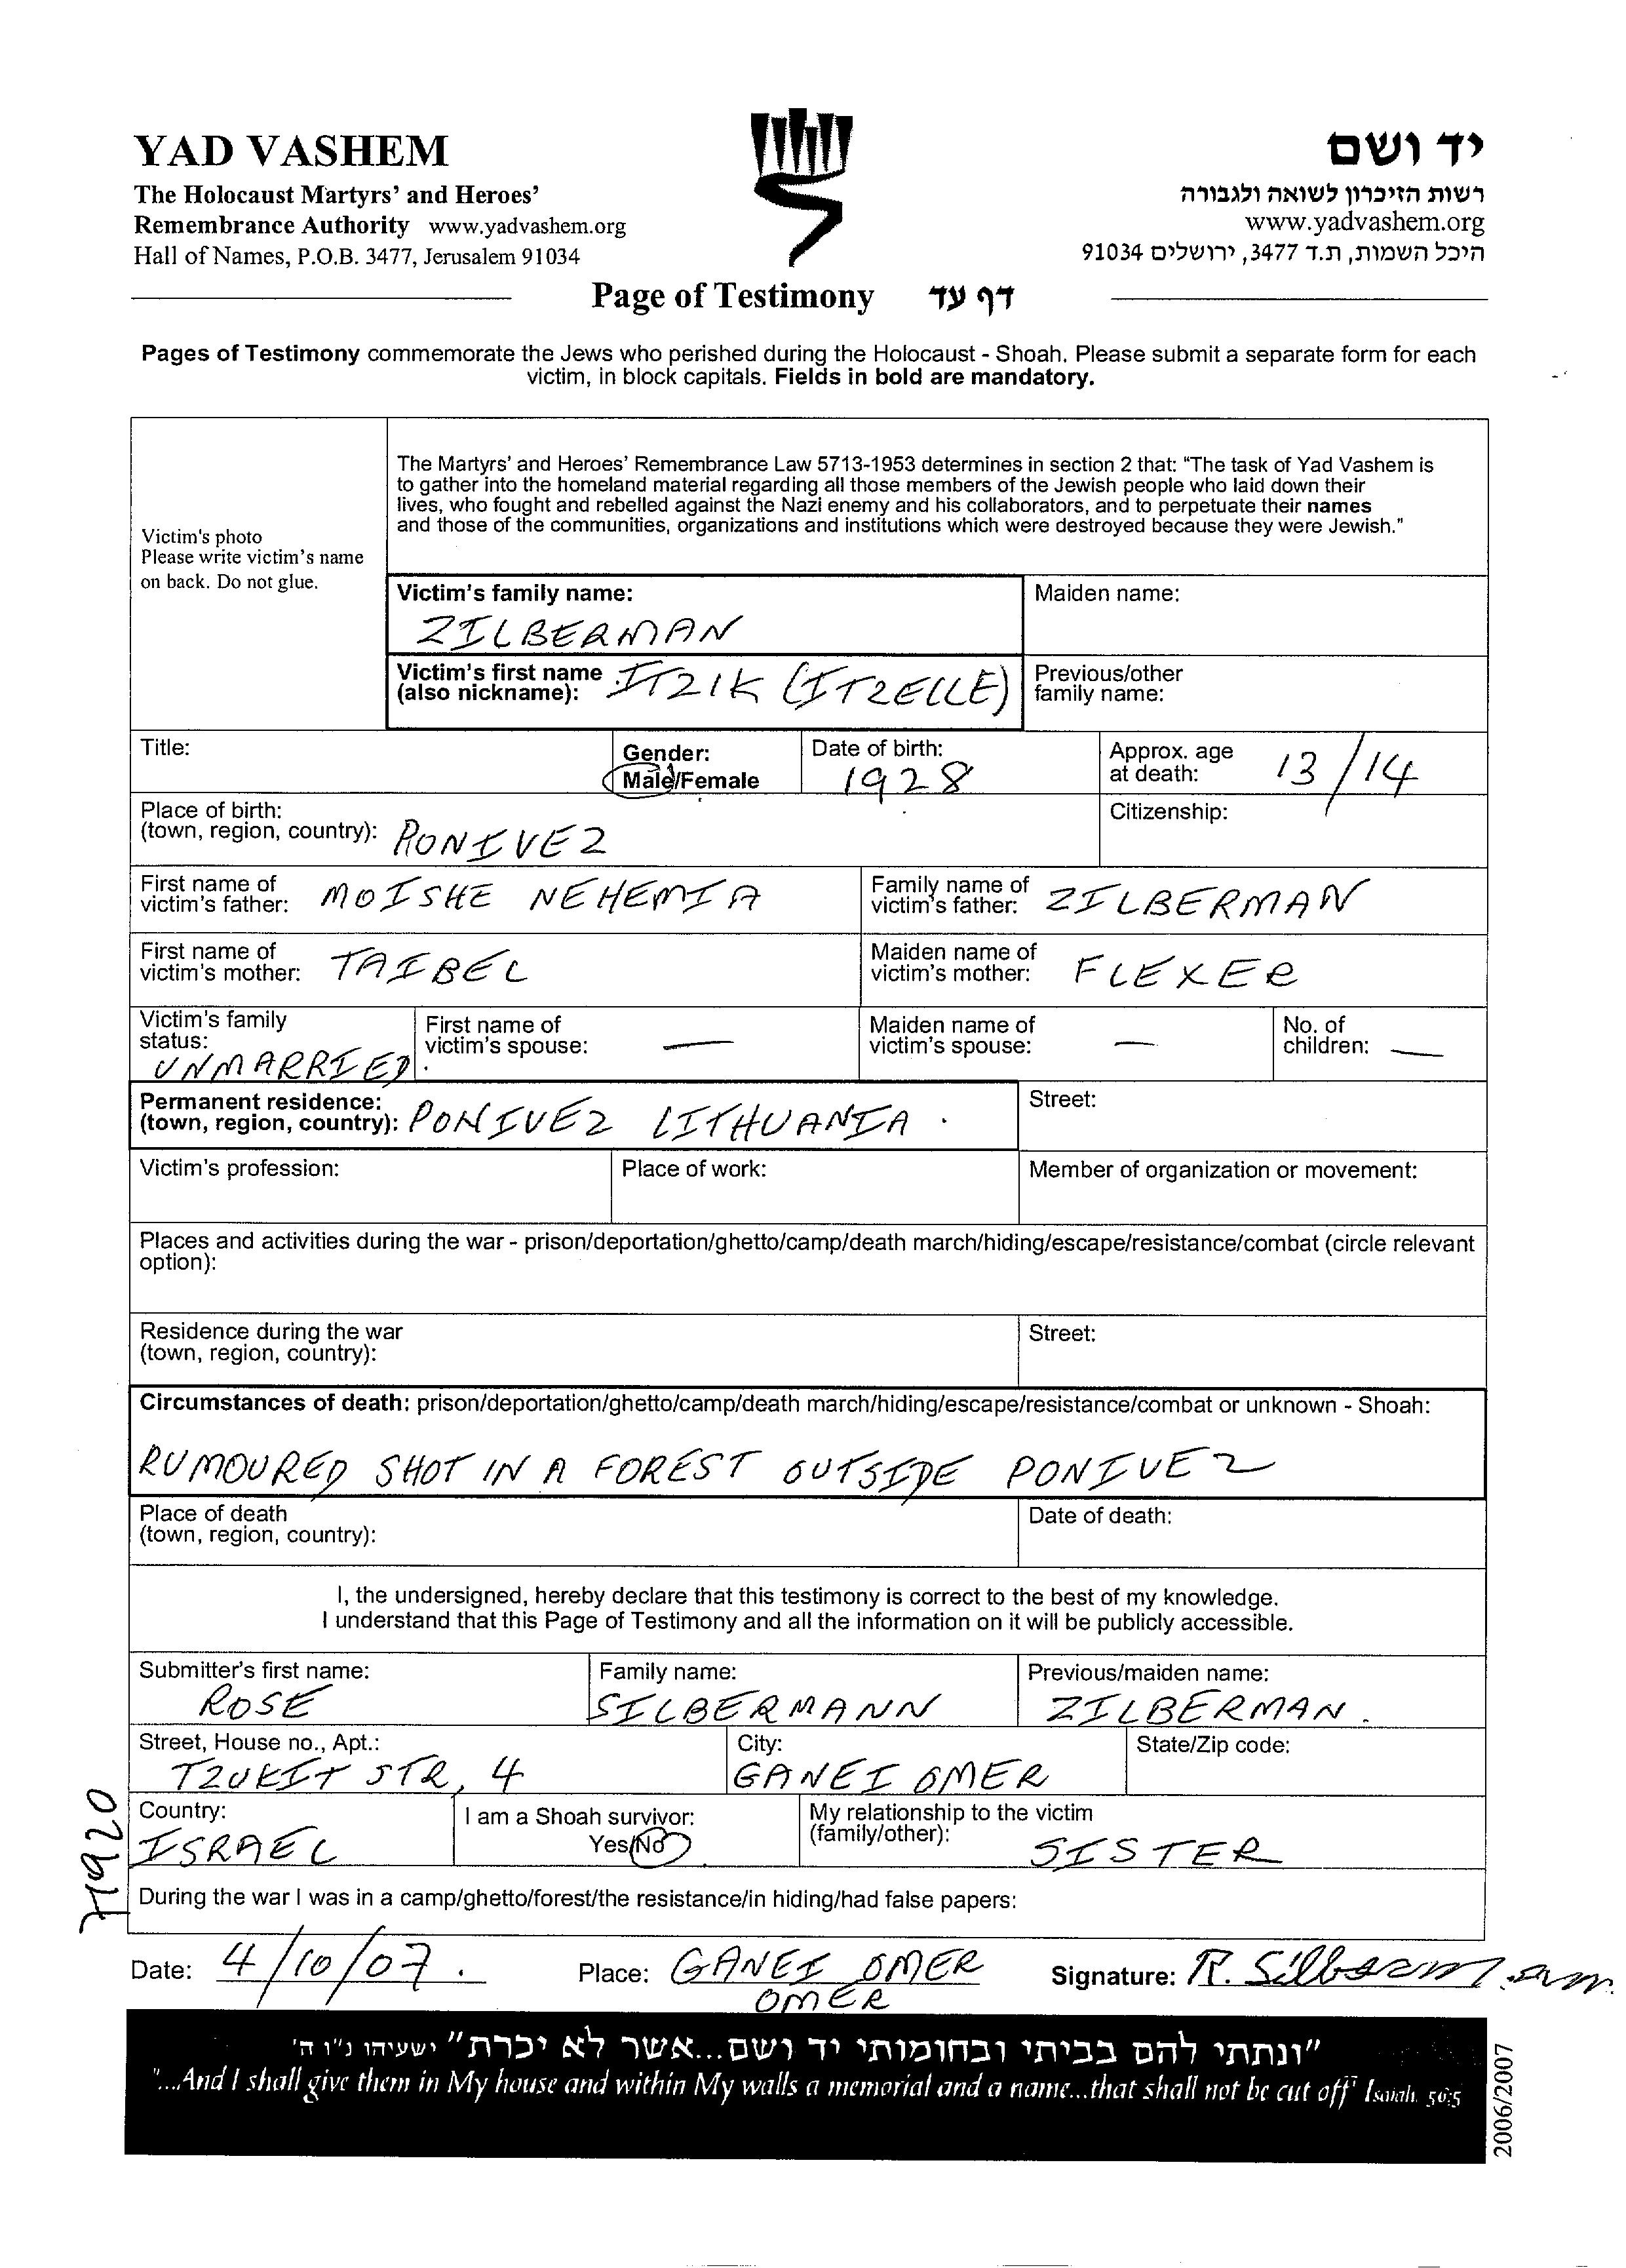 YAD VASHEM
The Holocaust Martyrs' and Heroes'
Remembrance Authority www.yadvashem.org
Hall of Names, P.O.B. 3477, Jerusalem 91034
יד ושם
רשות הזיכרון לשואה ולגבורה
www.yadvashem.org
היכל השמות, ת.ד 3477, ירושלים 91034
Page of Testimony דף עד
Pages of Testimony commemorate the Jews who perished during the Holocaust - Shoah. Please submit a separate form for each
victim, in block capitals. Fields in bold are mandatory.
Victim's photo
Please write victim's name
on back. Do not glue.
The Martyrs' and Heroes' Remembrance Law 5713-1953 determines in section 2 that: "The task of Yad Vashem is
to gather into the homeland material regarding all those members of the Jewish people who laid down their
lives, who fought and rebelled against the Nazi enemy and his collaborators, and to perpetuate their names
and those of the communities, organizations and institutions which were destroyed because they were Jewish."
Victim's family name:
ZILBERMAN
Maiden name:
Victim's first name
(also nickname): ITZIK (ITZELLE)
Previous/other
family name:
Title:
Gender:
Male/Female
Date of birth:
1928
Approx. age
at death: 13/14
Place of birth:
(town, region, country): PONIVEZ
Citizenship:
First name of
victim's father: MOISHE NEHEMIA
Family name of
victim's father: ZILBERMAN
First name of
victim's mother: TAIBEL
Maiden name of
victim's mother: FLEXER
Victim's family
status:
UNMARRIED.
First name of
victim's spouse: —
Maiden name of
victim's spouse: —
No. of
children: —
Permanent residence:
(town, region, country): PONIVEZ LITHUANIA.
Street:
Victim's profession:
Place of work:
Member of organization or movement:
Places and activities during the war - prison/deportation/ghetto/camp/death march/hiding/escape/resistance/combat (circle relevant
option):
Residence during the war
(town, region, country):
Street:
Circumstances of death: prison/deportation/ghetto/camp/death march/hiding/escape/resistance/combat or unknown - Shoah:
RUMOURED SHOT IN A FOREST OUTSIDE PONIVEZ
Place of death
(town, region, country):
Date of death:
I, the undersigned, hereby declare that this testimony is correct to the best of my knowledge.
I understand that this Page of Testimony and all the information on it will be publicly accessible.
Submitter's first name:
ROSE
Family name:
SILBERMANN
Previous/maiden name:
ZILBERMAN.
Street, House no., Apt.:
TZUKIT STR, 4
City:
GANEI OMER
State/Zip code:
Country:
ISRAEL
I am a Shoah survivor:
Yes/No
My relationship to the victim
(family/other):
SISTER
During the war I was in a camp/ghetto/forest/the resistance/in hiding/had false papers:
Date: 4/10/07.
Place: GANEI OMER
OMER
Signature: R. Silbermann
"ונתתי להם בביתי ובחומותי יד ושם...אשר לא יכרת" ישעיהו נ"ו ה'
"...And I shall give them in My house and within My walls a memorial and a name...that shall not be cut off" Isaiah. 56:5
2006/2007